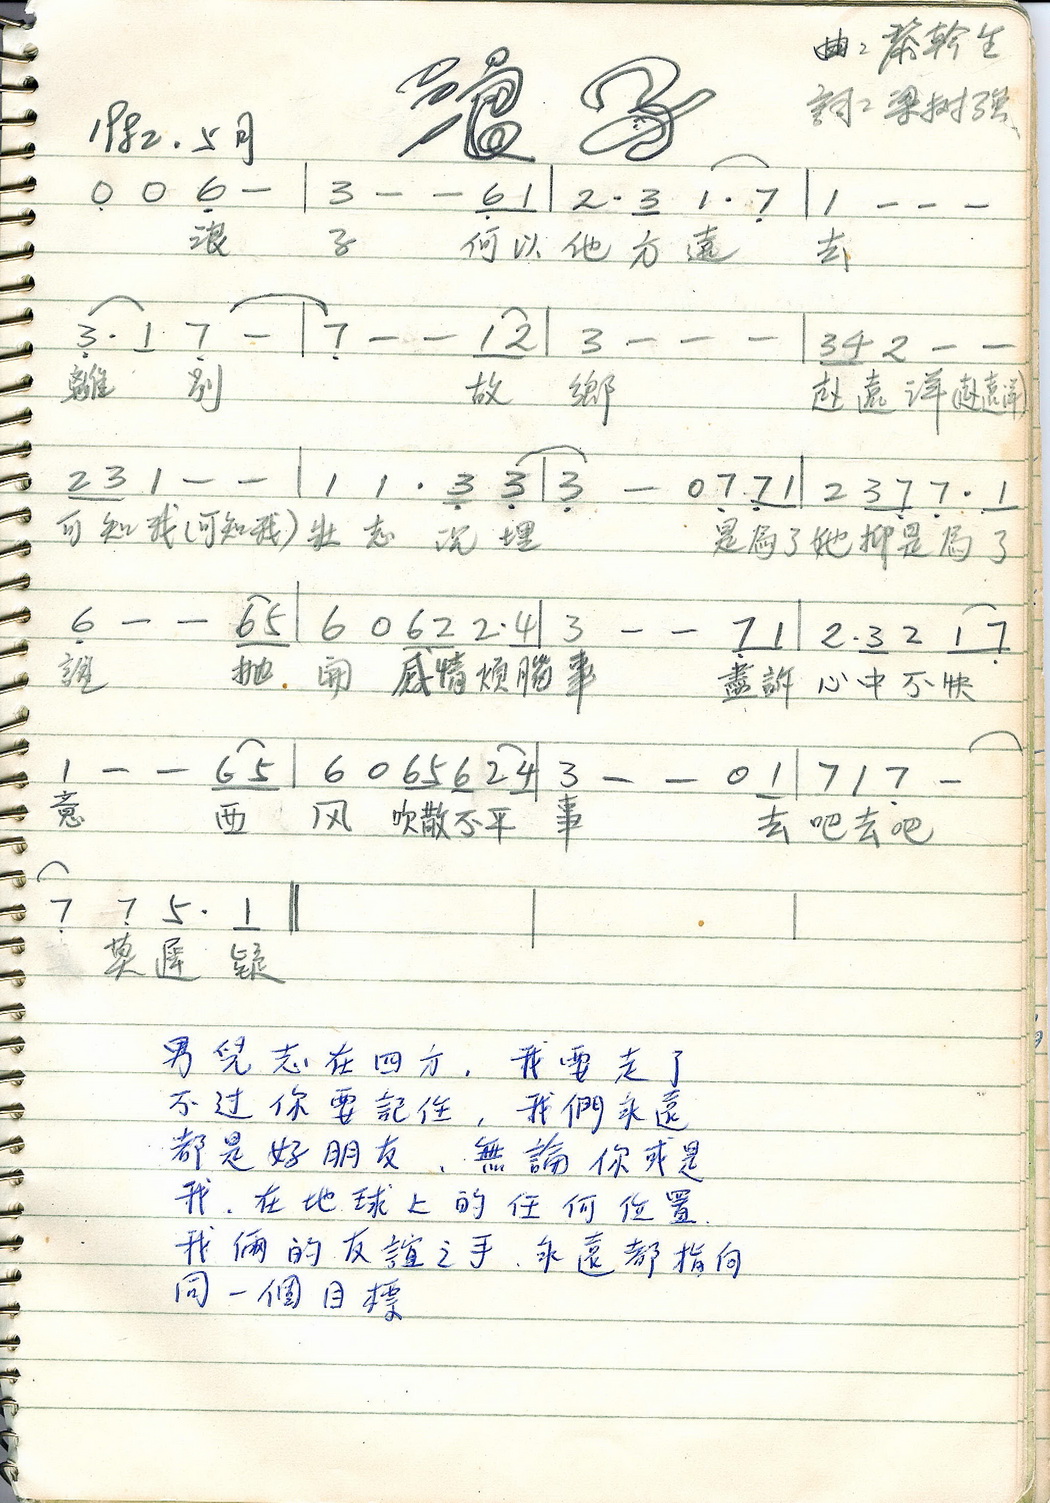 曲：黎幹生
浪子
詞：梁树强
1982.5月
0 0 6 — | 3 — — 6 1 | 2·3 1·7 | 1 — — —
浪 子 何以他方遠 去
3·1 7 — | 7 — — 1 2 | 3 — — — | 3 4 2 — —
離 别 故 鄉 赴遠洋(赴遠洋)
2 3 1 — — | 1 1 · 3 3 | 3 — 0 7 7 1 | 2 3 7 7·1
可知我(可知我)壯志沉埋 是為了她抑是為了
6 — — 6 5 | 6 0 6 2 2·4 | 3 — — 7 1 | 2·3 2 1 7
誰 抛開 感情煩腦事 盡訴心中不快
1 — — 6 5 | 6 0 6 5 6 2 4 | 3 — — 0 1 | 7 1 7 —
意 西风 吹散不平事 去吧去吧
7 7 5· 1 ‖
莫遲疑
男兒志在四方，我要走了
不过你要記住，我們永遠
都是好朋友、無論你或是
我、在地球上的任何位置、
我倆的友誼之手、永遠都指向
同一個目標